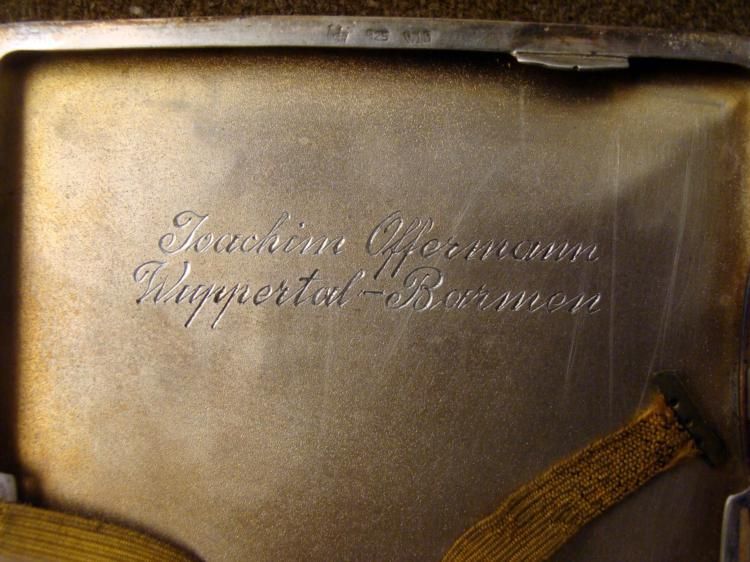 925
Joachim Offermann
Wuppertal-Barmen